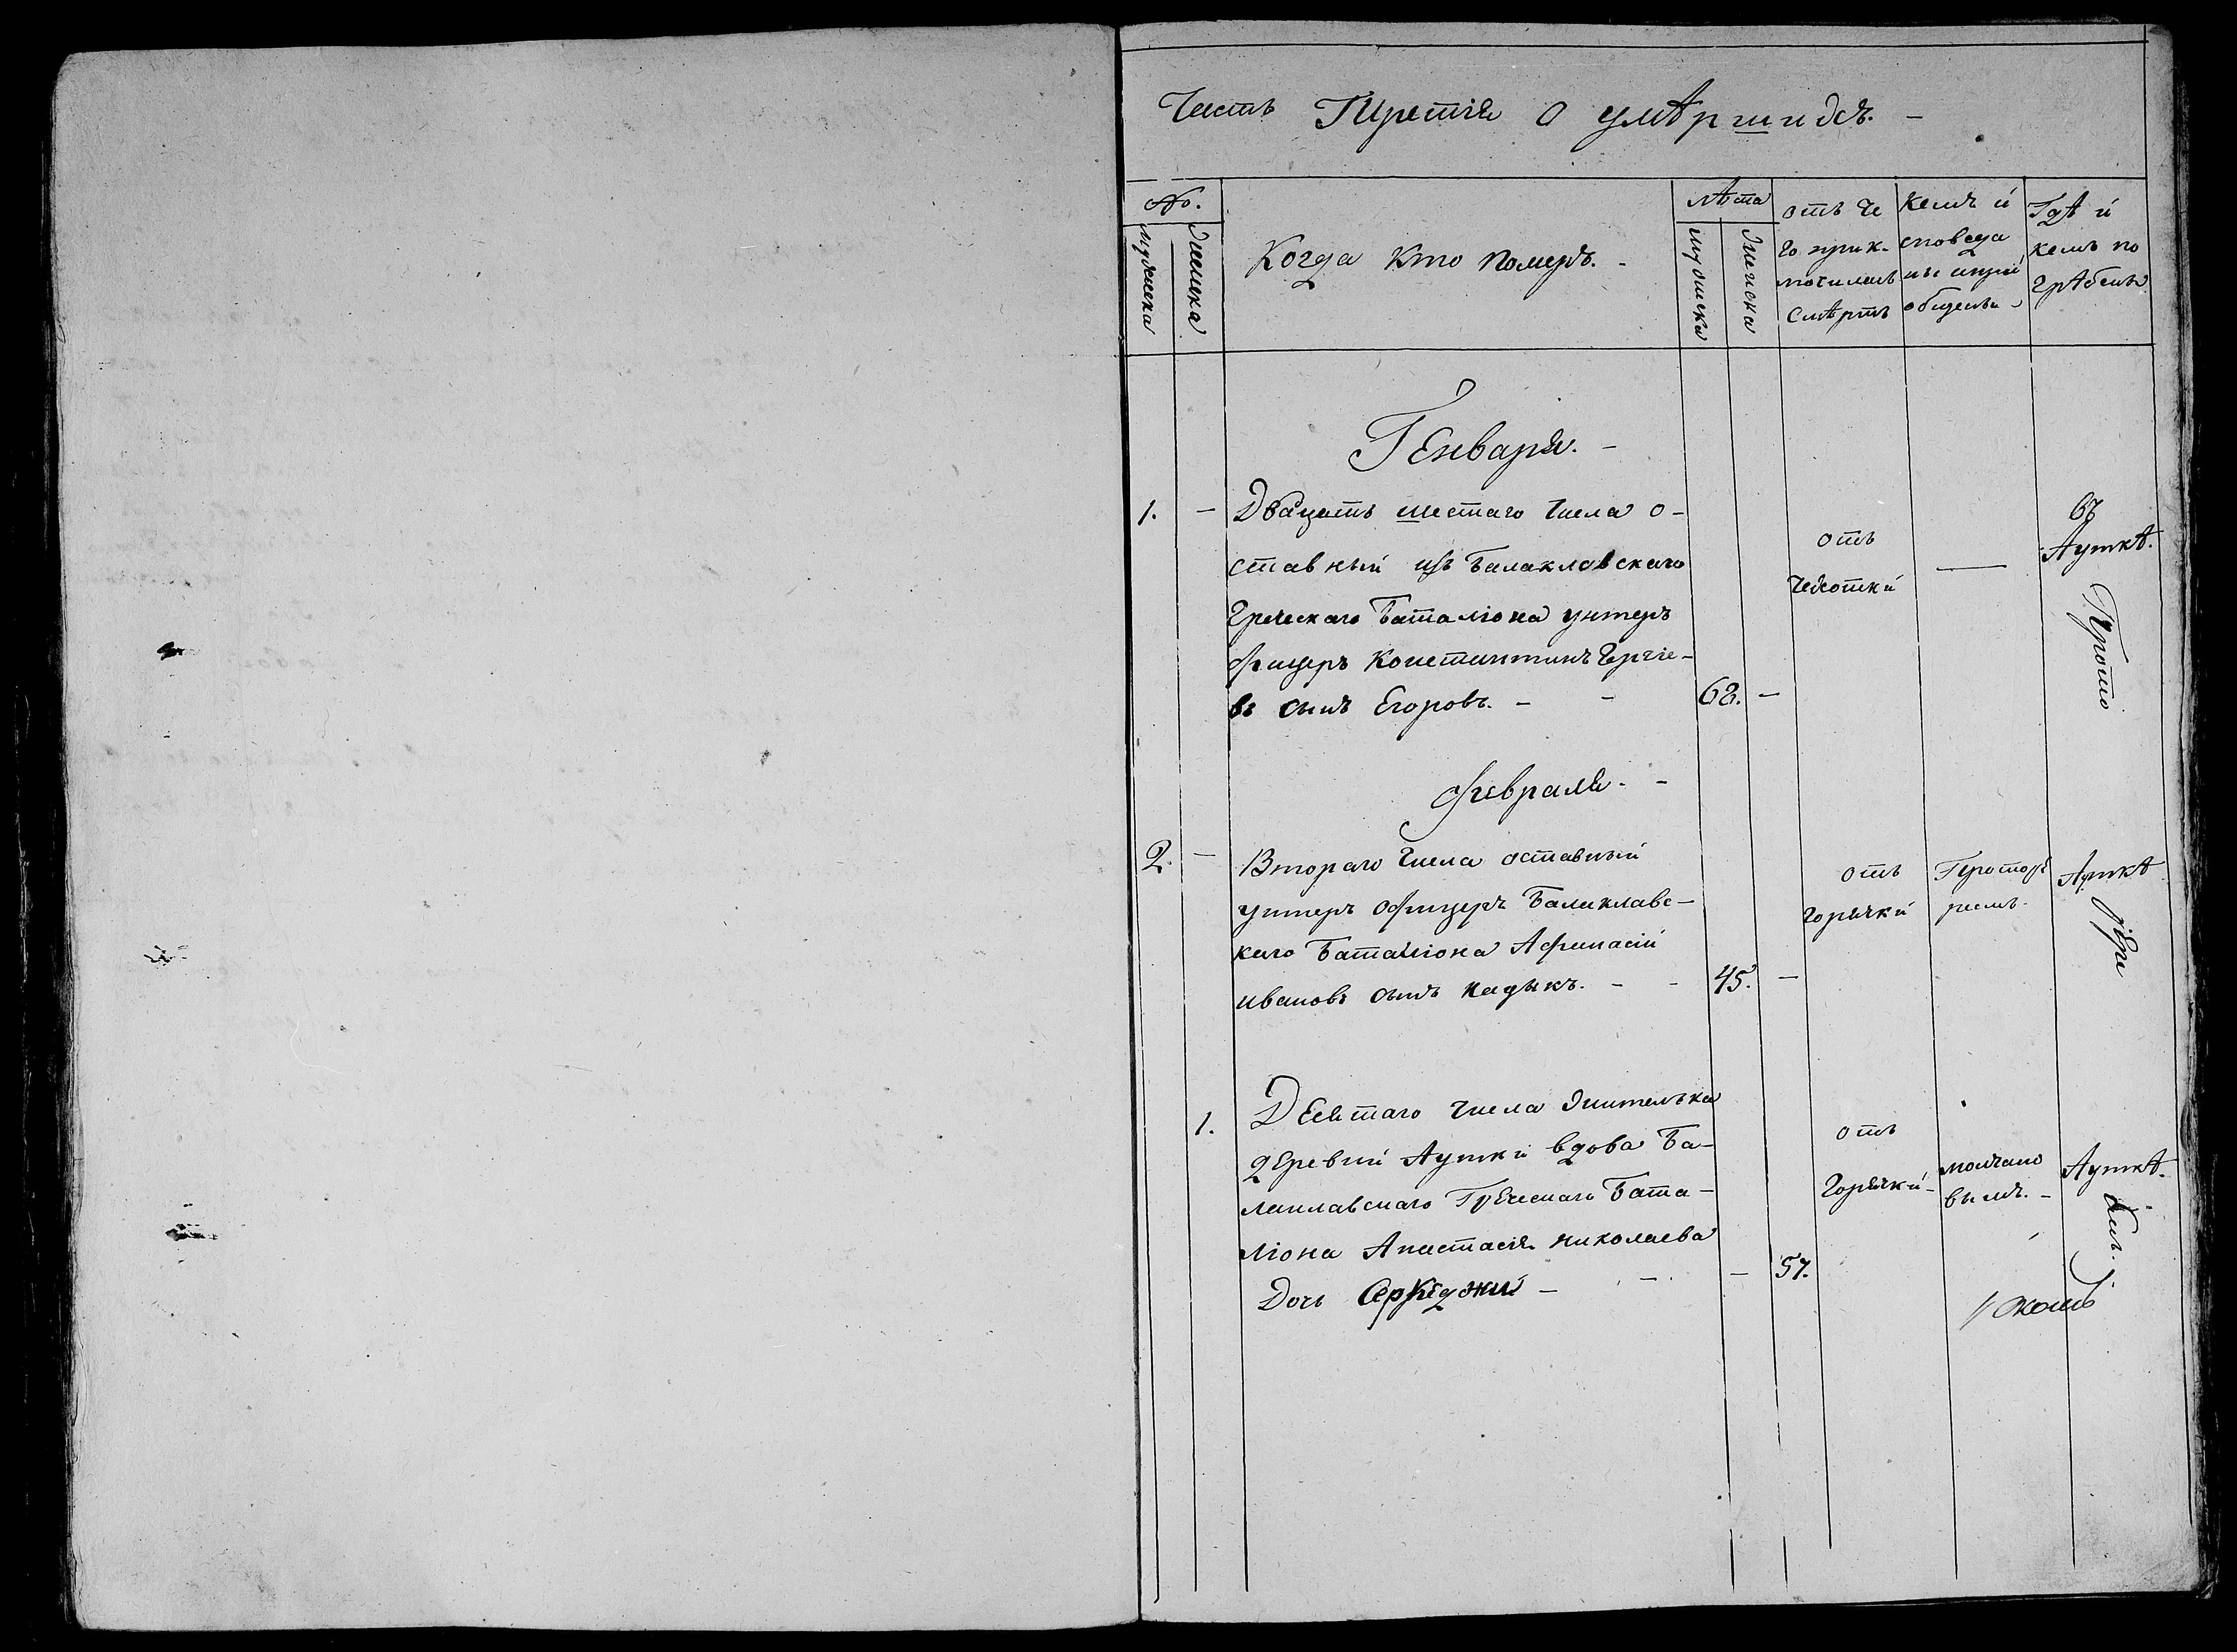 Часть Третія о умѣршихъ. -
№.
мужеска
женска
Когда кто померъ. -
лѣта
мужска
женска
отъ че
го прик-
лючилась
смѣрть
кемъ и
споведа
ны и прі
общены
Гдѣ и
кемъ по
грѣбены
Генваря. -
1. - Двацать шестаго числа о-
ставный изъ Балаклавскаго
Греческаго Баталіона унтеръ
офицеръ Константинъ Гергіе-
въ сынъ Егоровъ. - - 68. -
отъ
чехотки
—
въ
Ауткѣ.
Прото
Февраля. -
2. - Втораго числа оставный
унтеръ офицеръ Балаклавс-
каго Баталіона Афанасій
ивановъ сынъ кадыкъ. - - 45. -
отъ
горячки
Протоіе
реемъ.
Аүткѣ
іере
1. Десятаго числа жителька
деревни Аутки вдова Ба-
лаклавскаго Греческаго Бата-
ліона Анастасія николаева
Дочь Серкиджи - - - 57.
отъ
Горячки -
молчано
вымъ. -
Ауткѣ.